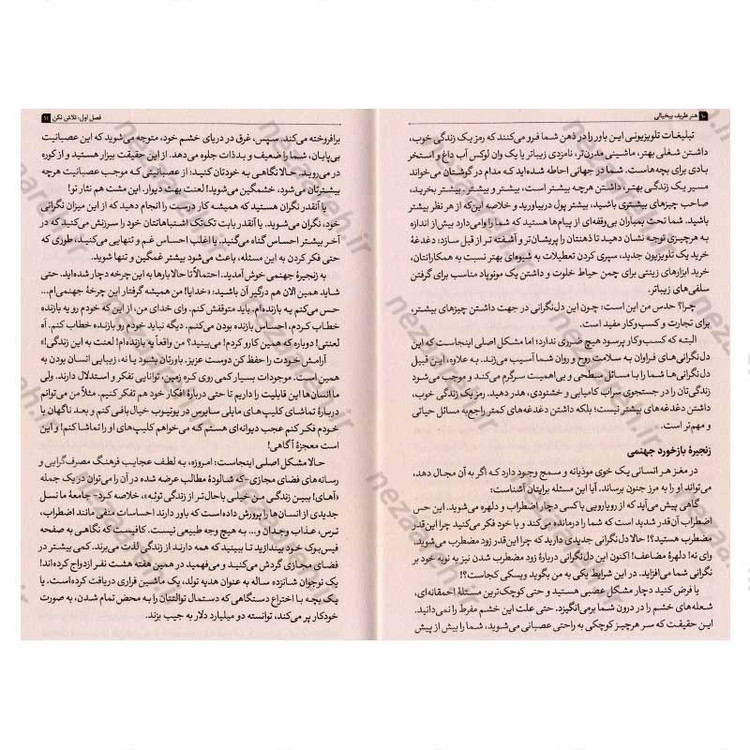 ۱۰ هنر ظریف بیخیالی
تبلیغات تلویزیونی این باور را در ذهن شما فرو می‌کنند که رمز یک زندگی خوب،
داشتن شغلی بهتر، ماشینی مدرن‌تر، نامزدی زیباتر یا یک وان لوکس آب داغ و استخر
بادی برای بچه‌هاست. شما در جهانی احاطه شده‌اید که مدام در گوشتان می‌خواند
مسیر یک زندگی بهتر، داشتن هرچه بیشتر است، بیشتر و بیشتر. بیشتر بخرید،
صاحب چیزهای بیشتری باشید، بیشتر پول دربیاورید و خلاصه این‌که از هر نظر بیشتر
باشید. شما تحت بمباران بی‌وقفه‌ای از پیام‌ها هستید که شما را وامی‌دارد بیش از اندازه
به هرچیزی توجه نشان دهید تا ذهنتان را پریشان‌تر و آشفته‌تر از قبل سازد: دغدغهٔ
خرید یک تلویزیون جدید، سپری کردن تعطیلات به شیوه‌ای بهتر نسبت به همکارانتان،
خرید ابزارهای زینتی برای چمن حیاط خلوت و داشتن یک مونوپاد مناسب برای گرفتن
سلفی‌های زیباتر.
چرا؟ حدس من این است: چون این دل‌نگرانی در جهت داشتن چیزهای بیشتر،
برای تجارت و کسب‌وکار مفید است.
البته که کسب‌وکار پرسود هیچ ضرری ندارد؛ اما مشکل اصلی اینجاست که این
دل‌نگرانی‌های فراوان به سلامت روح و روان شما آسیب می‌زند. به علاوه، این قبیل
دل‌نگرانی‌ها شما را با مسائل سطحی و بی‌اهمیت سرگرم می‌کند و موجب می‌شود
زندگی‌تان را در جستجوی سراب کامیابی و خشنودی، هدر دهید. رمز یک زندگی خوب،
داشتن دغدغه‌های بیشتر نیست؛ بلکه داشتن دغدغه‌های کمتر راجع‌به مسائل حیاتی
و مهم‌تر است.
زنجیرهٔ بازخورد جهنمی
در مغز هر انسانی یک خوی موذیانه و سمج وجود دارد که اگر به آن مجال دهد،
می‌تواند او را به مرز جنون برساند. آیا این مسئله برایتان آشناست:
گاهی پیش می‌آید که از رویارویی با کسی دچار اضطراب و دلهره می‌شوید. این حس
اضطراب آن‌قدر شدید است که شما را درمانده می‌کند و با خود فکر می‌کنید چرا این‌قدر
مضطرب هستید؟! حالا دل‌نگرانی جدیدی دارید: چرا این‌قدر زود مضطرب می‌شوید.
وای نه! دلهرهٔ مضاعف! اکنون این دل‌نگرانی دربارهٔ زود مضطرب شدن نیز به نوبه خود بر
نگرانی شما می‌افزاید. در این شرایط یکی به من بگوید ویسکی کجاست؟!
یا فرض کنید دچار مشکل عصبی هستید و حتی کوچک‌ترین مسئلهٔ احمقانه‌ای،
شعله‌های خشم را در درون شما برمی‌انگیزد. حتی علت این خشم مفرط را نمی‌دانید.
این حقیقت که سر هرچیز کوچکی به راحتی عصبانی می‌شوید، شما را بیش از پیش
فصل اول: تلاش نکن ۱۱
برافروخته می‌کند. سپس، غرق در دریای خشم خود، متوجه می‌شوید که این عصبانیت
بی‌پایان، شما را ضعیف و بدذات جلوه می‌دهد. از این حقیقت بیزار هستید و از کوره
در می‌روید. حالا نگاهی به خودتان کنید: از عصبانیتی که موجب عصبانیت هرچه
بیشترتان می‌شود، خشمگین می‌شوید! لعنت بهت دیوار. این مشت هم نثار تو!
یا آنقدر نگران هستید که همیشه کار درست را انجام دهید که از این میزان نگرانی
خود، نگران می‌شوید. یا آنقدر بابت تک‌تک اشتباهاتتان خود را سرزنش می‌کنید که در
آخر بیشتر احساس گناه می‌کنید. یا اغلب احساس غم و تنهایی می‌کنید، طوری که
حتی فکر کردن به این مسئله، باعث می‌شود بیشتر غمگین و تنها شوید.
به زنجیرهٔ جهنمی خوش آمدید. احتمالاً تا حالا بارها به این چرخه دچار شده‌اید. حتی
شاید همین الان هم درگیر آن باشید: «خدایا! من همیشه گرفتار این چرخهٔ جهنمی‌ام...
من یه بازنده‌ام. باید متوقفش کنم. وای خدای من، از این که خودم رو یه بازنده
خطاب کردم، احساس بازنده بودن می‌کنم. دیگه نباید خودم رو بازنده خطاب کنم. آه
لعنتی! دوباره که همین کارو کردم! می‌بینید؟ من واقعاً یه بازنده‌ام! لعنت به این زندگی!»
آرامش خودت را حفظ کن دوست عزیز. باورتان بشود یا نه، زیبایی انسان بودن به
همین است. موجودات بسیار کمی روی کره زمین، توانایی تفکر و استدلال دارند. ولی
ما انسان‌ها این قابلیت را داریم تا حتی دربارهٔ افکار خود هم تفکر کنیم. مثلاً من می‌توانم
دربارهٔ تماشای کلیپ‌های مایلی سایرس در یوتیوب خیال‌بافی کنم و بعد ناگهان با
خودم فکر کنم عجب دیوانه‌ای هستم که می‌خواهم کلیپ‌های او را تماشا کنم! و این
است معجزهٔ آگاهی!
حالا مشکل اصلی اینجاست: امروزه، به لطف عجایب فرهنگ مصرف‌گرایی و
رسانه‌های فضای مجازی-که شالودهٔ مطالب عرضه شده در آن را می‌توان در یک جمله
«آهای! ببین زندگی من خیلی باحال‌تر از زندگی توئه»، خلاصه کرد- جامعهٔ ما نسل
جدیدی از انسان‌ها را پرورش داده‌است که باور دارند احساسات منفی مانند اضطراب،
ترس، عذاب وجدان و... به هیچ وجه طبیعی نیست. کافیست که نگاهی به صفحه
فیس‌بوک خود بیندازید تا ببینید که همه دارند از زندگی لذت می‌برند. کمی بیشتر در
فضای مجازی گردش می‌کنید و می‌فهمید در همین هفته هشت نفر ازدواج کرده‌اند!
یک نوجوان شانزده ساله به عنوان هدیه تولد، یک ماشین فراری دریافت کرده‌است. یا
یک بچه با اختراع دستگاهی که دستمال توالتتان را به محض تمام شدن، به صورت
خودکار پر می‌کند، توانسته دو میلیارد دلار به جیب بزند.
nezarah.ir